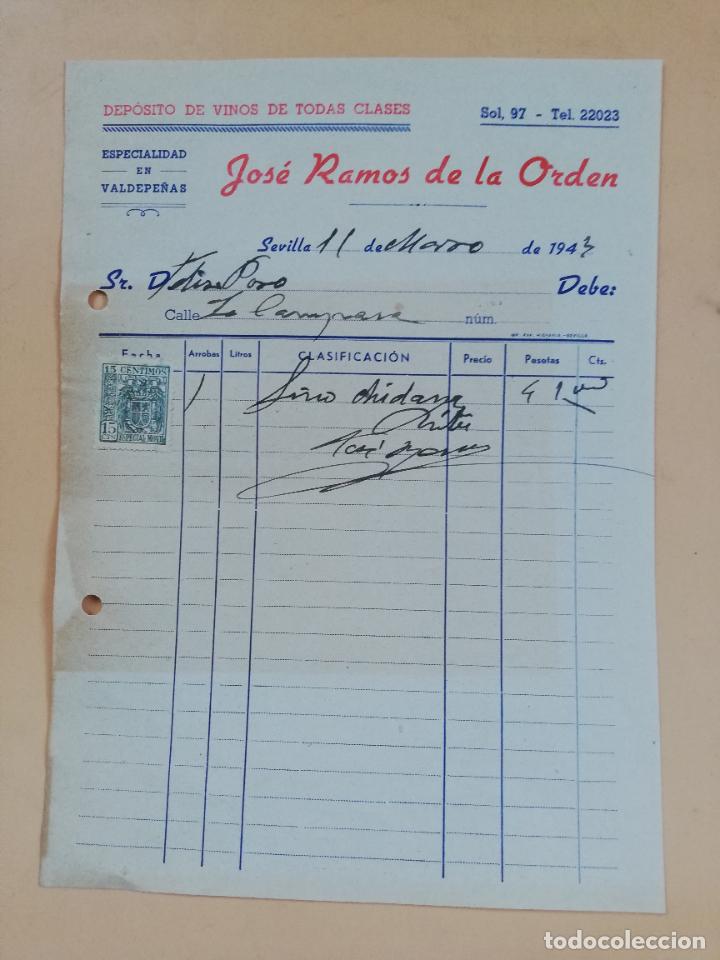 DEPÓSITO DE VINOS DE TODAS CLASES
Sol, 97 - Tel. 22023
ESPECIALIDAD
EN
VALDEPEÑAS
José Ramos de la Orden
Sevilla 11 de Marzo de 1943
Sr. D. Felix Poso Debe:
Calle La Campana núm.
Fecha Arrobas Litros CLASIFICACIÓN Precio Pesetas Cts.
15 CENTIMOS
15
CTS
ESPECIAL MOVIL
1 41
José Ramos
todocoleccion
todocoleccion.net